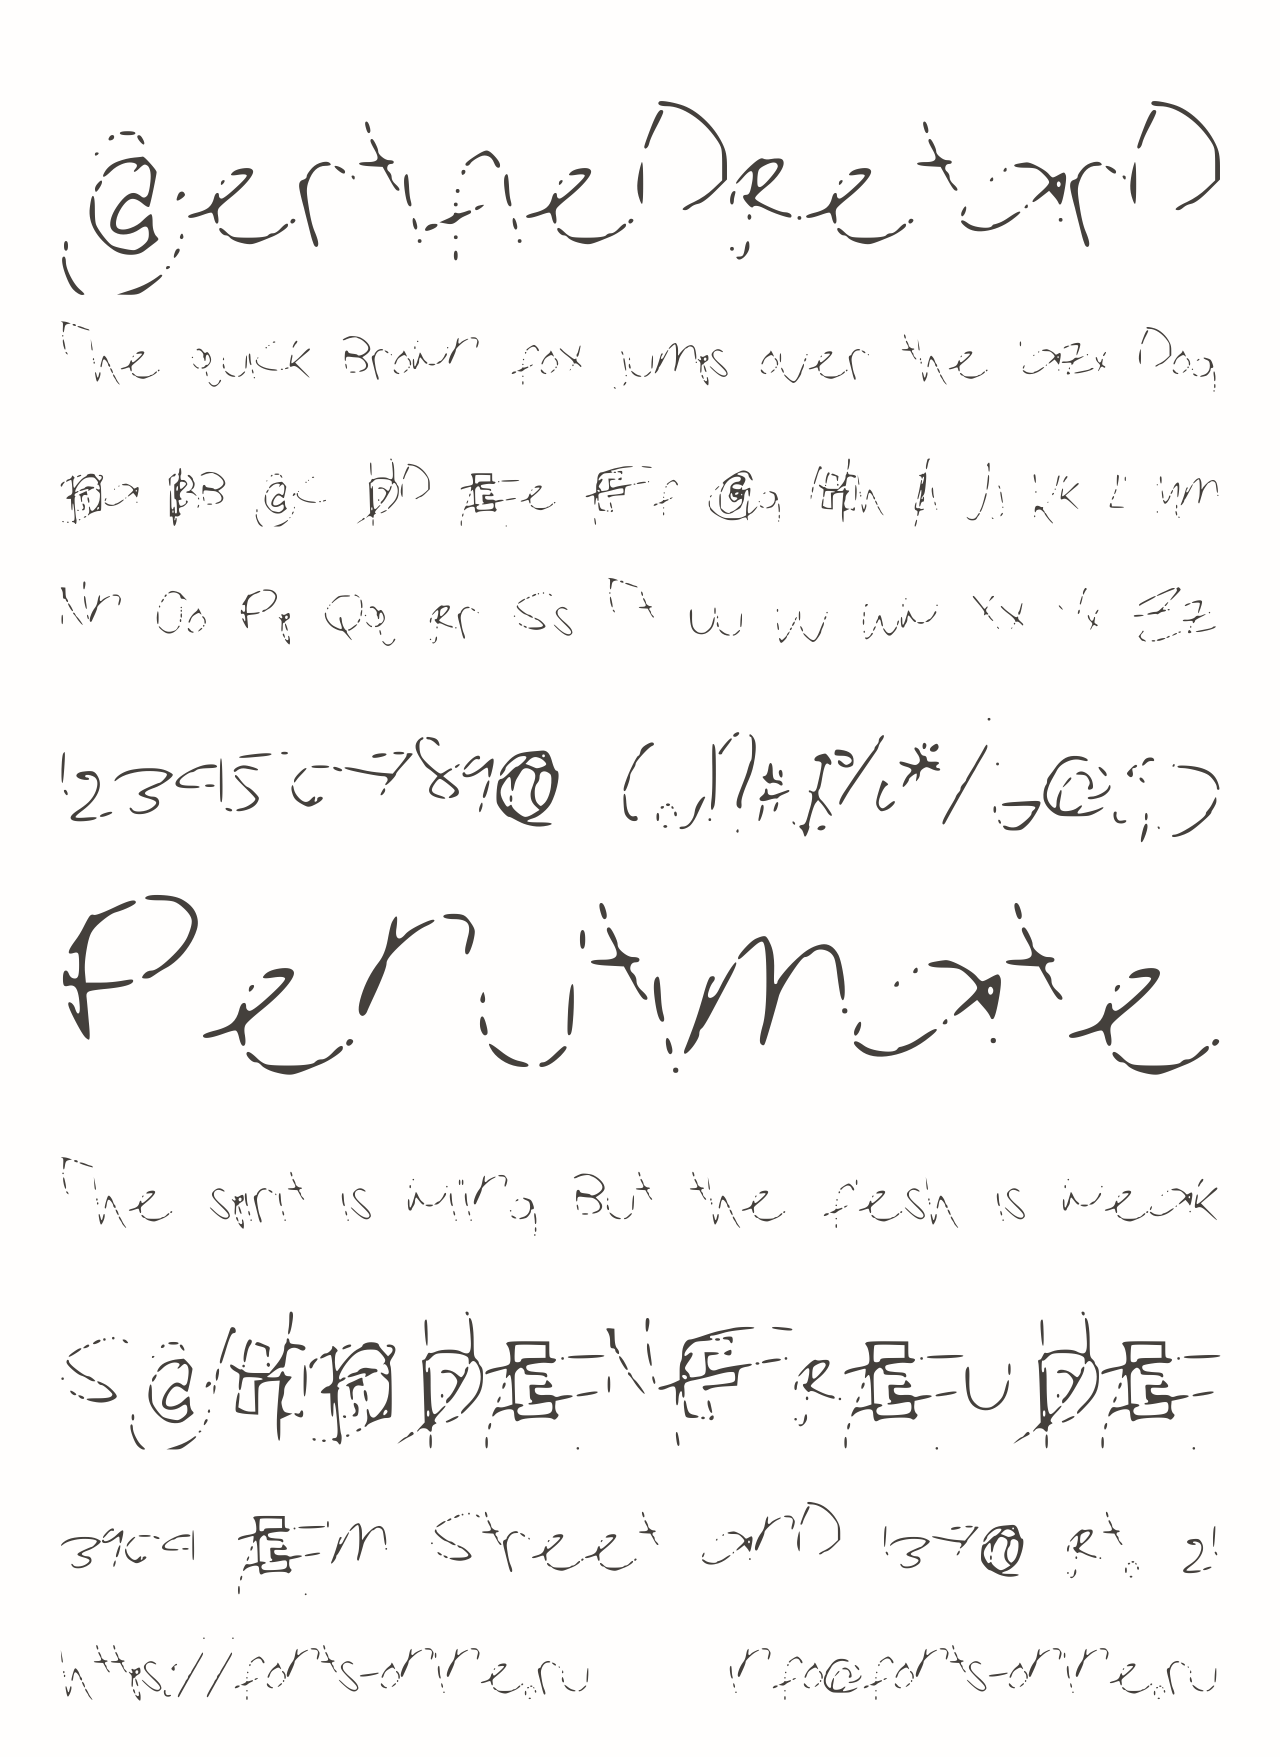 CertifieDRetarD
The quick Brown fox jumps over the lazy Dog
Aa Bb Cc Dd Ee Ff Gg Hh Ii Jj Kk Ll Mm
Nn Oo Pp Qq Rr Ss Tt Uu Vv Ww Xx Yy Zz
1234567890
Penultimate
The spirit is willing But the flesh is weak
SCHADENFREUDE
3964 Elm Street anD 1370 Rt. 21
https://fonts-online.ru info@fonts-online.ru